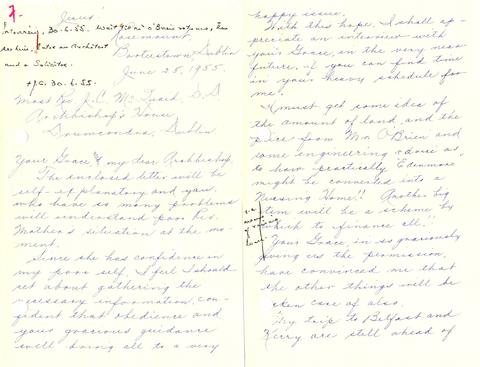 Jesus
Interview, 30.6.55. Wait till Mr O'Brien
an Architect
and a Solicitor.
+ J.C. 30.6.55.
Rosemount
Booterstown, Dublin
June 25, 1955.
Most Rev. J.C. Mc Quaid, D.D.
Archbishop's House
Drumcondra, Dublin
Your Grace & my dear Archbishop,
The enclosed letter will be
self-explanatory and you
who have so many problems
will understand poor Rev.
Mother's situation at the mo-
ment.
Since she has confidence in
my poor self, I feel I should
set about gathering the
necessary information, con-
fident that obedience and
your gracious guidance
will bring all to a very
happy issue.
With this hope, I shall ap-
preciate an interview with
your Grace, in the very near
future, if you can find time
in your heavy schedule for
me!
I must get some idea of
the amount of land, and the
price from Mr. O'Brien and
some engineering advice as
to how practically Edenmore
might be converted into a
Nursing Home!! Another big
item will be a scheme, by
which to finance all!
means
of
Your Grace, in so graciously
giving us the permission,
have convinced me that
the other things will be
taken care of also.
My trip to Belfast and
Kerry are still ahead of